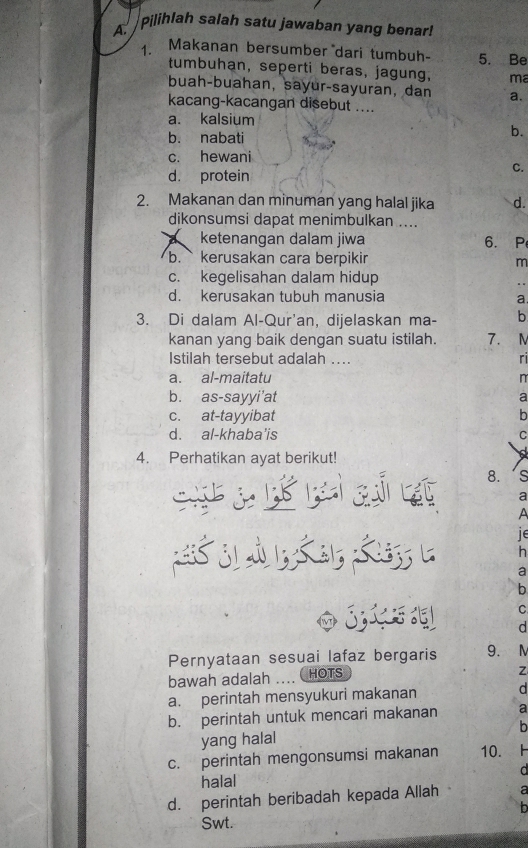 A. Pilihlah salah satu jawaban yang benar!
1. Makanan bersumber dari tumbuh-
tumbuhan, seperti beras, jagung,
buah-buahan, sayur-sayuran, dan
kacang-kacangan disebut ....
a. kalsium
b. nabati
c. hewani
d. protein
2. Makanan dan minuman yang halal jika
dikonsumsi dapat menimbulkan ....
a. ketenangan dalam jiwa
b. kerusakan cara berpikir
c. kegelisahan dalam hidup
d. kerusakan tubuh manusia
3. Di dalam Al-Qur'an, dijelaskan ma-
kanan yang baik dengan suatu istilah.
Istilah tersebut adalah ....
a. al-maitatu
b. as-sayyi'at
c. at-tayyibat
d. al-khaba'is
4. Perhatikan ayat berikut!
يٰٓاَيُّهَا الَّذِيْنَ اٰمَنُوْا كُلُوْا مِنْ طَيِّبٰتِ
مَا رَزَقْنٰكُمْ وَاشْكُرُوْا لِلّٰهِ اِنْ كُنْتُمْ
اِيَّاهُ تَعْبُدُوْنَ ١٧٢
Pernyataan sesuai lafaz bergaris
bawah adalah .... HOTS
a. perintah mensyukuri makanan
b. perintah untuk mencari makanan
yang halal
c. perintah mengonsumsi makanan
halal
d. perintah beribadah kepada Allah
Swt.
5. Be
ma
a.
b.
c.
d.
6. Pe
m
..
a.
b
7. M
ri
m
a
b
c
d
8. S
a
A
je
h
a
b
c
d
9. M
z
d
a
b
10. H
d
a
b